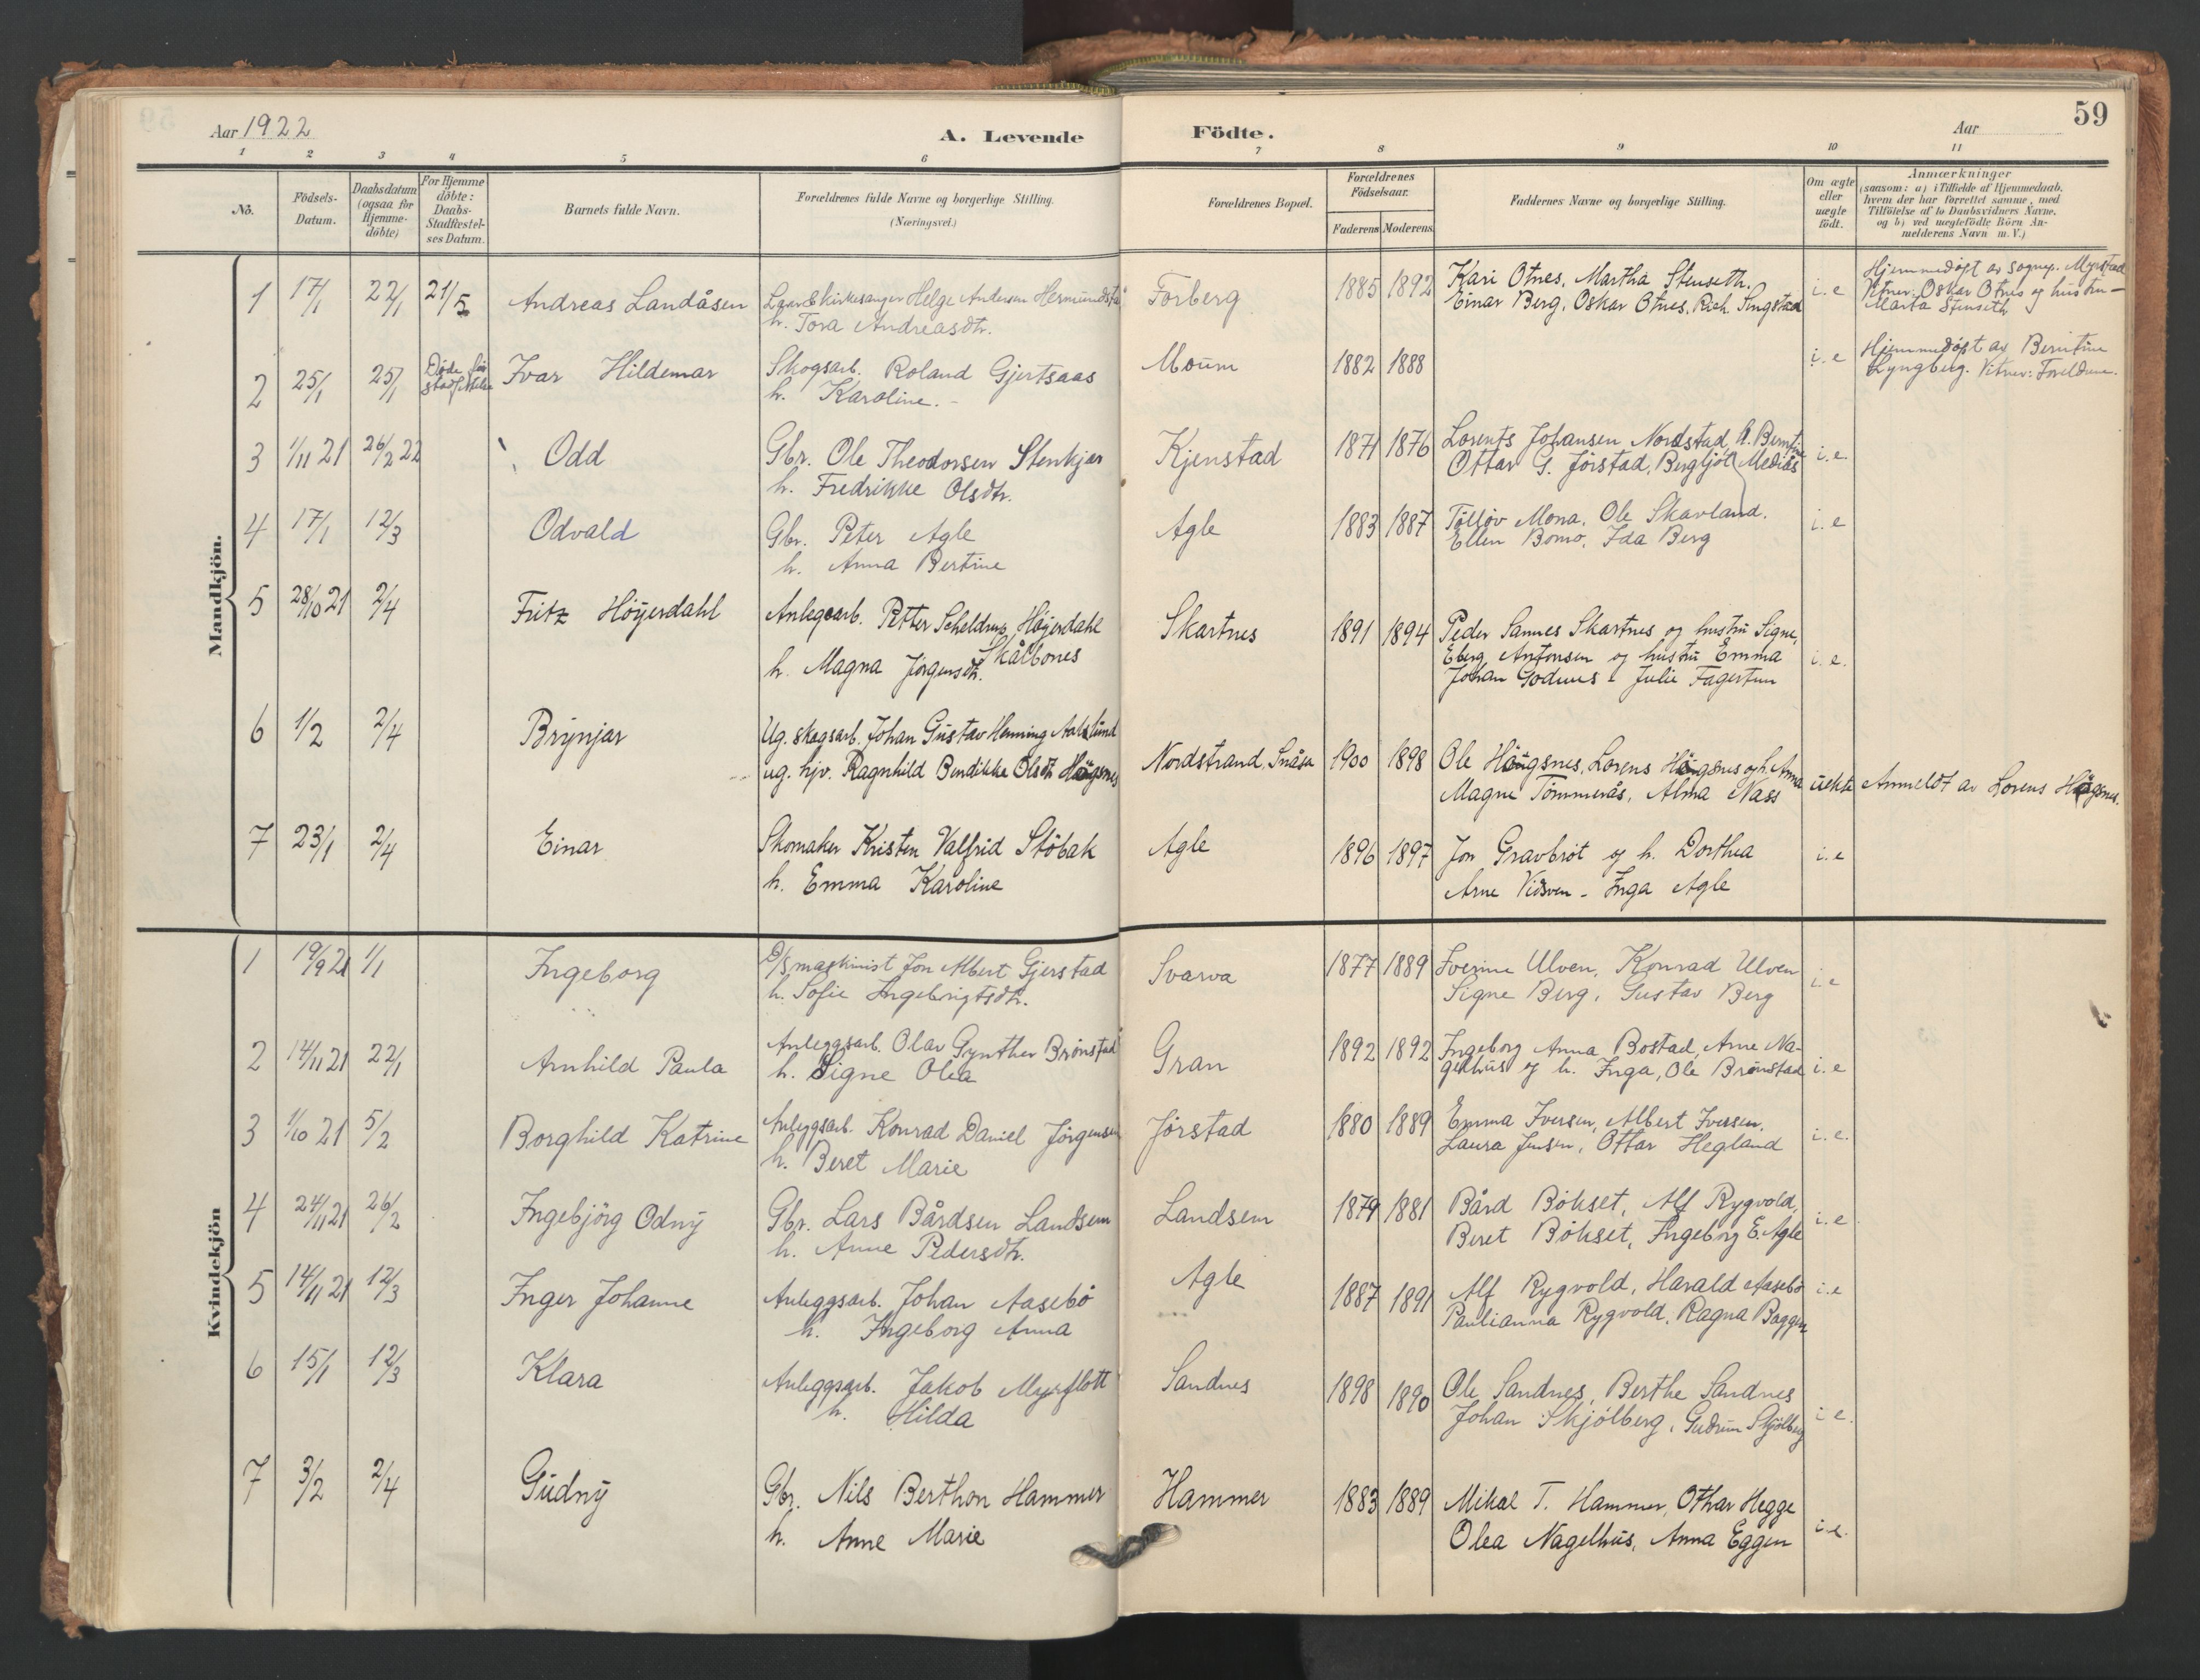 59
Aar 1922
A. Levende Födte.
Aar
1 2 3 4 5 6 7 8 9 10 11
No.
Födsels-
Datum.
Daabsdatum
(ogsaa for
Hjemme-
döbte)
For Hjemme
döbte:
Daabs-
Stadfæstel-
ses Datum.
Barnets fulde Navn.
Forældrenes fulde Navne og borgerlige Stilling.
(Næringsvei.)
Forældrenes Bopæl.
Forældrenes
Födselsaar.
Faderens Moderens
Faddernes Navne og borgerlige Stilling.
Om ægte
eller
uægte
födt.
Anmærkninger
(saasom: a) i Tilfælde af Hjemmedaab,
hvem der har forrettet samme, med
Tilföielse af to Daabsvidners Navne,
og b) ved uægtefödte Börn An-
melderens Navn m. V.)
Mandkjön.
1 17/1 22/1 21/5 Andreas Landåsen
Helge Andersen
h. Tora Andreasdtr.
Forberg 1885 1892
Kari Otnes, Martha Stenseth,
Einar Berg, Oskar Otnes, Rich. Singstad
i. e
Hjemmedøpt av sognep. Myrstad
Vitner: Oskar Otnes og hustru
Marta Stenseth
2 25/1 25/1
Døde før
Ivar Hildemar
Skogsarb. Roland Gjertsaas
h. Karoline.
Moum 1882 1888
i. e
Hjemmedøpt av Berntine
Lyngberg. Vitner: Foreldrene.
3 1/11 21 26/2 22 Odd
Gbr. Ole Theodorsen Stenkjær
h. Fredrikke Olsdtr.
Kjenstad 1871 1876
Lorents Johansen Nordstad, h. Berntine
Ottar G. Jörstad, Bergljót Mediås
i. e.
4 17/1 12/3 Odvald
Gbr. Peter Agle
h. Anna Bertine
Agle 1883 1887
Tölløv Mona, Ole Skavland.
Ellen Bomo, Ida Berg
i. e
5 28/10 21 2/4 Fritz Höyerdahl
Anlegsarb. Petter Scheldrup Höyerdahl
Skålbones
h. Magna Jörgensdtr.
Skartnes 1891 1894
Peder Sannes Skartnes og hustru Signe,
Eberg Antonsen og hustru Emma
Johan Godnes - Julie Fagertun
i. e.
6 1/2 2/4 Brynjar
Ug. skogsarb. Johan Gustav Henning
ug. hjv. Ragnhild Bendikke Olsdtr Höugsnes
Nordstrand, Snåsa 1900 1898
Ole Höugsnes, Lorens Höugsnes og h. Anna
Magne Tömmerås, Alma Nass
uekte
Anmeldt av Lorens Högsnes.
7 23/1 2/4 Einar
Skomaker Kristen Valfrid Stöbak
h. Emma Karoline
Agle 1896 1897
Jon Gravbröt og h. Dorthea
Arne Vidsven - Inga Agle
i. e
Kvindekjön
1 19/9 21 1/1 Ingeborg
D/S maskinist Jon Albert Gjerstad
h. Sofie Ingebrigtsdtr.
Svarva 1877 1889
Iverine Ulven, Konrad Ulven
Signe Berg, Gustav Berg
i. e
2 14/11 21 22/1 Arnhild Paula
Anleggsarb. Olav Gynther Brønstad
h. Signe Olea
Gran 1892 1892
Ingeborg Anna Bostad, Arne Na-
gelhus og h. Inga, Ole Brønstad
i. e
3 1/10 21 5/2 Borghild Katrine
Anleggsarb. Konrad Daniel Jörgensen
h. Beret Marie
Jörstad 1880 1889
Emma Iversen, Albert Iversen.
Laura Jensen, Ottar Hegland
i. e.
4 24/11 21 26/2 Ingebjörg Odny
Gbr. Lars Bårdsen Landsem
h. Anne Pedersdtr.
Landsem 1879 1881
Bård Bökset, Alf Rygvold,
Beret Bökset, Ingeborg E. Agle
i. e
5 14/11 21 12/3 Inger Johanne
Anleggsarb. Johan Aasebö
h. Ingeborg Anna
Agle 1887 1891
Alf Rygvold, Harald Aasebö
Paulianna Rygvold, Ragna Baggen
i. e
6 15/1 12/3 Klara
Anleggsarb. Jakob Myrflott
h. Hilda
Sandnes 1898 1890
Ole Sandnes, Berthe Sandnes
Johan Skjölberg, Gudrun Skjölberg
i. e.
7 3/2 2/4 Gudny
Gbr. Nils Berthon Hammer
h. Anne Marie
Hammer 1883 1889
Mikal T. Hammer, Othar Hegge
Olea Nagelhus, Anna Eggen
i. e.